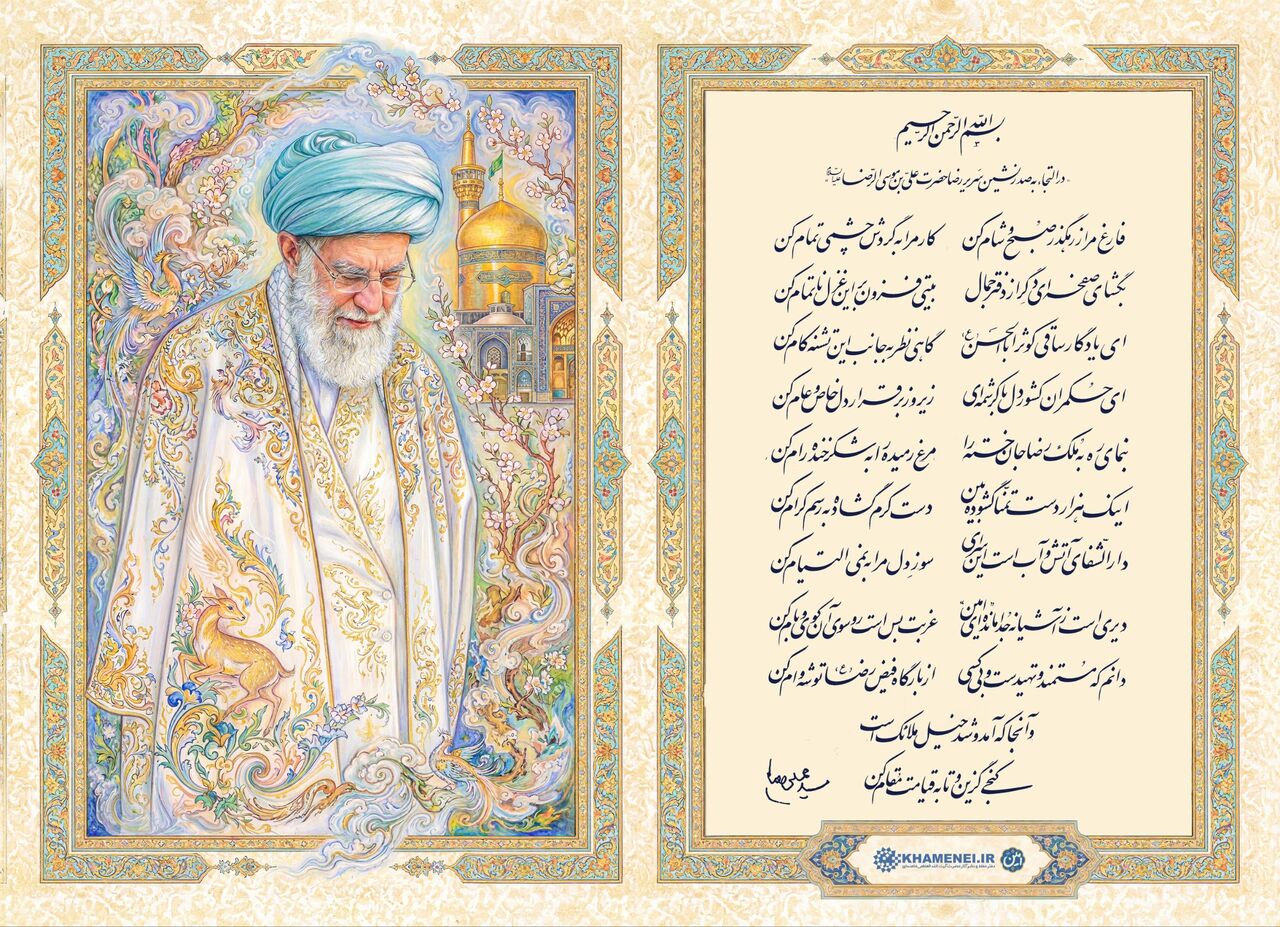 بسم الله الرحمن الرحیم
در التجاء به صدرنشین سریر رضا حضرت علی بن موسی الرضا علیه‌السلام
فارغ مرا ز رهگذر صبح و شام کن کار مرا به گردش چشمی تمام کن
بگشای صفحه‌ای دگر از دفتر جمال بیتی فزون بر این غزل ناتمام کن
ای یادگار ساقی کوثر ابالحسن (ع) گاهی نظر به جانب این تشنه کام کن
ای حکمران کشور دل با کرشمه‌ای زیر و زبر قرار دل خاص و عام کن
بنمای ره به ملک رضا جان خسته را مرغ رمیده را به شکرخنده رام کن
اینک هزار دست تمنا گشوده بین دست کرم گشاده به رسم کرام کن
دارالشفای آتش و آب است این سرای سوز دل مرا به نمی التیام کن
دیری است ز آشیانه جدا مانده‌ای امین غربت بس است رو سوی آن کوی و بام کن
دانم که مستمند و تهیدست و بی کسی از بارگاه فیض رضا (ع) توشه وام کن
و آنجا که آمد و شد خیل ملائک است
کنجی گزین و تا به قیامت مقام کن
KHAMENEI.IR